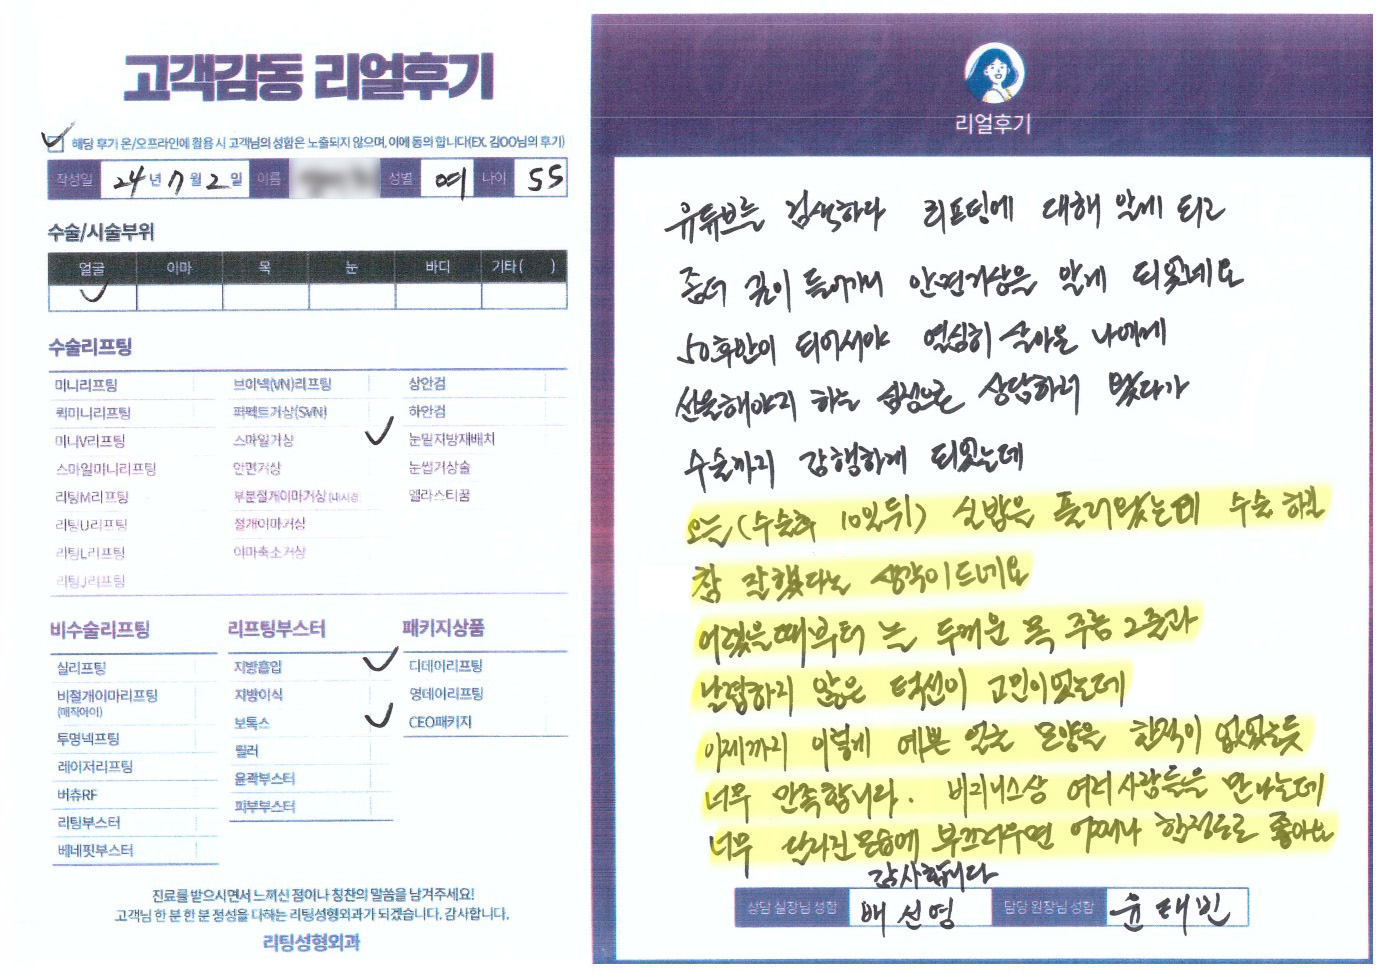 고객감동 리얼후기
해당 후기 온/오프라인에 활용 시 고객님의 성함은 노출되지 않으며, 이에 동의 합니다(EX. 김OO님의 후기)
작성일 24 년 7 월 2 일 이름 성별 여 나이 55
수술/시술부위
얼굴 이마 목 눈 바디 기타 ( )
수술리프팅
미니리프팅 브이넥(VN)리프팅 상안검
퀵미니리프팅 퍼펙트거상(SVN) 하안검
미니V리프팅 스마일거상 눈밑지방재배치
스마일미니리프팅 안면거상 눈썹거상술
리팅M리프팅 부분절개이마거상(내시경) 엘라스티꿈
리팅U리프팅 절개이마거상
리팅L리프팅 이마축소거상
리팅J리프팅
비수술리프팅 리프팅부스터 패키지상품
실리프팅 지방흡입 디데이리프팅
비절개이마리프팅 지방이식 영데이리프팅
(매직아이)
투명넥프팅 보톡스 CEO패키지
레이저리프팅 필러
버츄RF 윤곽부스터
리팅부스터 피부부스터
베네핏부스터
진료를 받으시면서 느끼신 점이나 칭찬의 말씀을 남겨주세요!
고객님 한 분 한 분 정성을 다하는 리팅성형외과가 되겠습니다. 감사합니다.
리팅성형외과
리얼후기
유튜브를 검색하다 리프팅에 대해 알게 되고
좀더 깊이 들어가니 안면거상을 알게 되었네요
50후반이 되어서야 열심히 살아온 나에게
선물해야지 하는 심정으로 상담하러 왔다가
수술까지 강행하게 되었는데
오늘 (수술후 10일뒤) 실밥을 풀러왔는데 수술 하길
참 잘했다는 생각이 드네요
어렸을때부터 늘 두꺼운 목 주름 2줄과
날렵하지 않은 턱선이 고민이었는데
이제까지 이렇게 예쁜 얼굴 모양을 한적이 없었는듯
너무 만족합니다. 비지니스상 여러사람들을 만나는데
너무 달라진모습에 부끄러우면 어쩌나 할정도로 좋아요
감사합니다
상담 실장님 성함 배선영 담당 원장님 성함 윤태빈